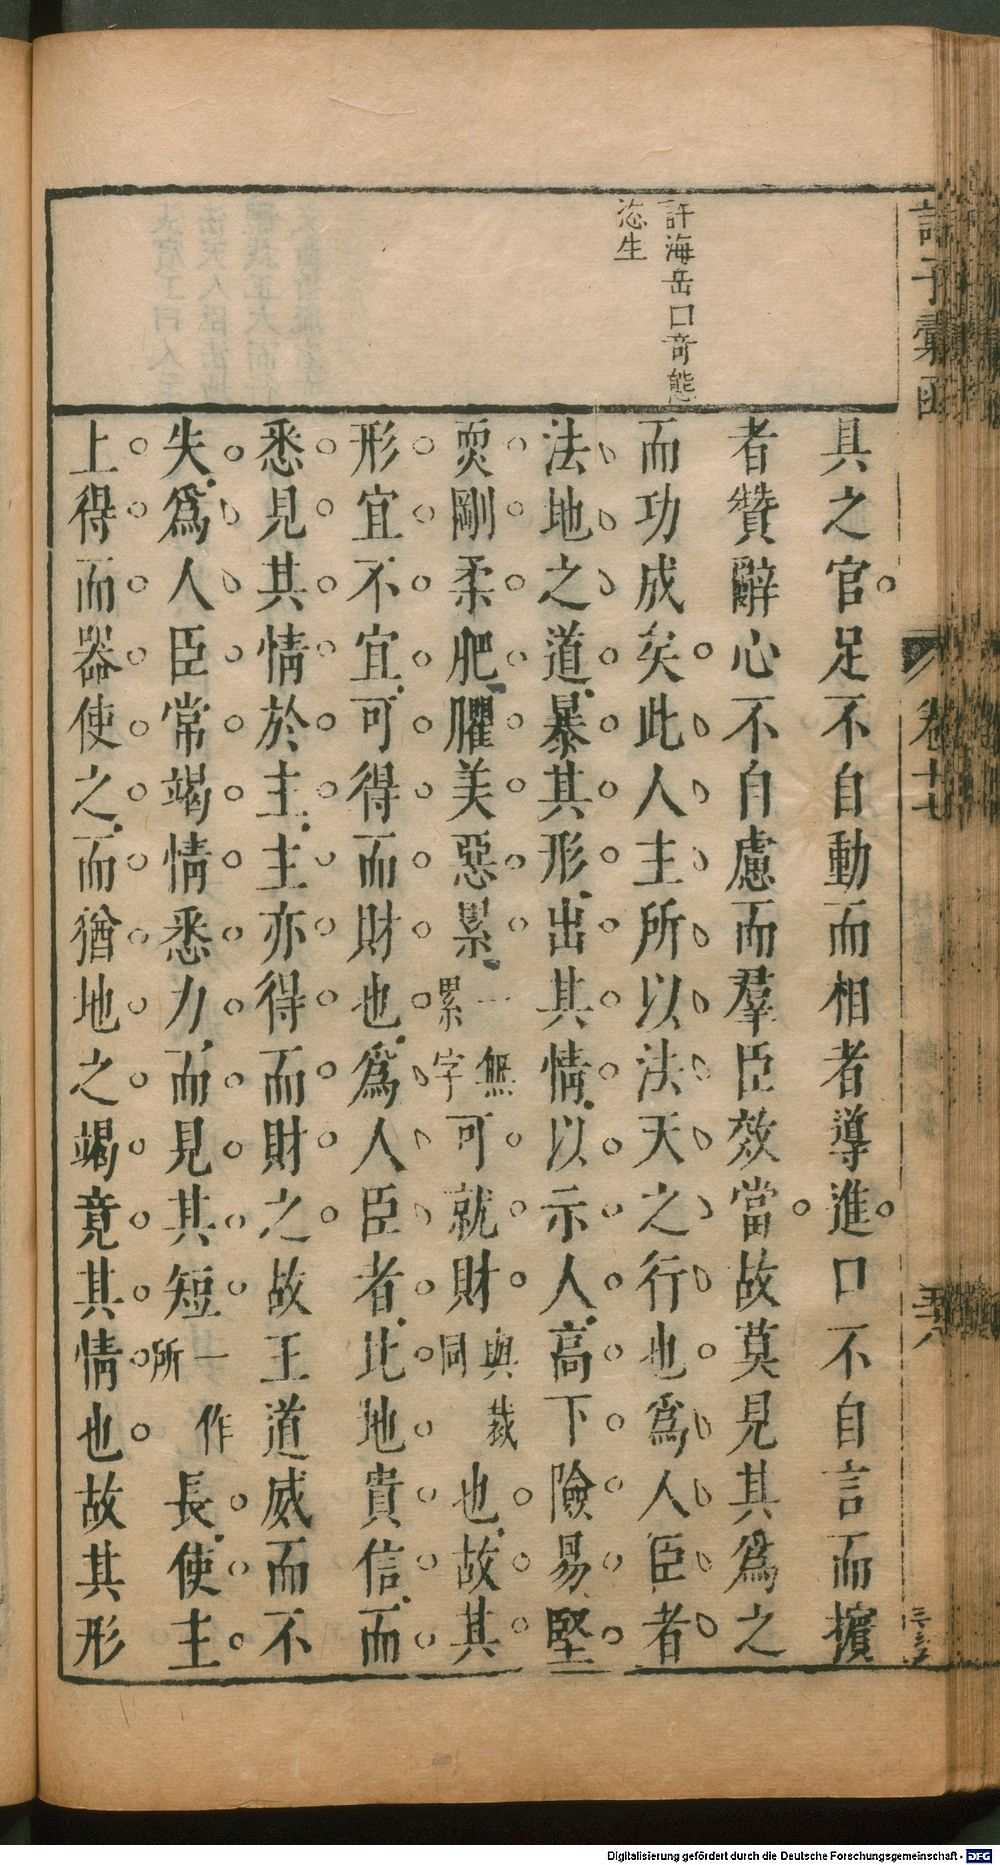 許海岳口奇態
恣生
具之官足不自動而相者導進口不自言而擯
者贊辭心不自慮而羣臣效當故莫見其爲之
而功成矣此人主所以法天之行也爲人臣者
法地之道暴其形出其情以示人高下險易堅
耎剛柔肥臞美惡累一無累字可就財與裁同也故其
形宜不宜可得而財也爲人臣者比地貴信而
悉見其情於主主亦得而財之故王道威而不
失爲人臣常竭情悉力而見其短一作所長使主
上得而器使之而猶地之竭竟其情也故其形
諸子彙函
卷十七
Digitalisierung gefördert durch die Deutsche Forschungsgemeinschaft - DFG